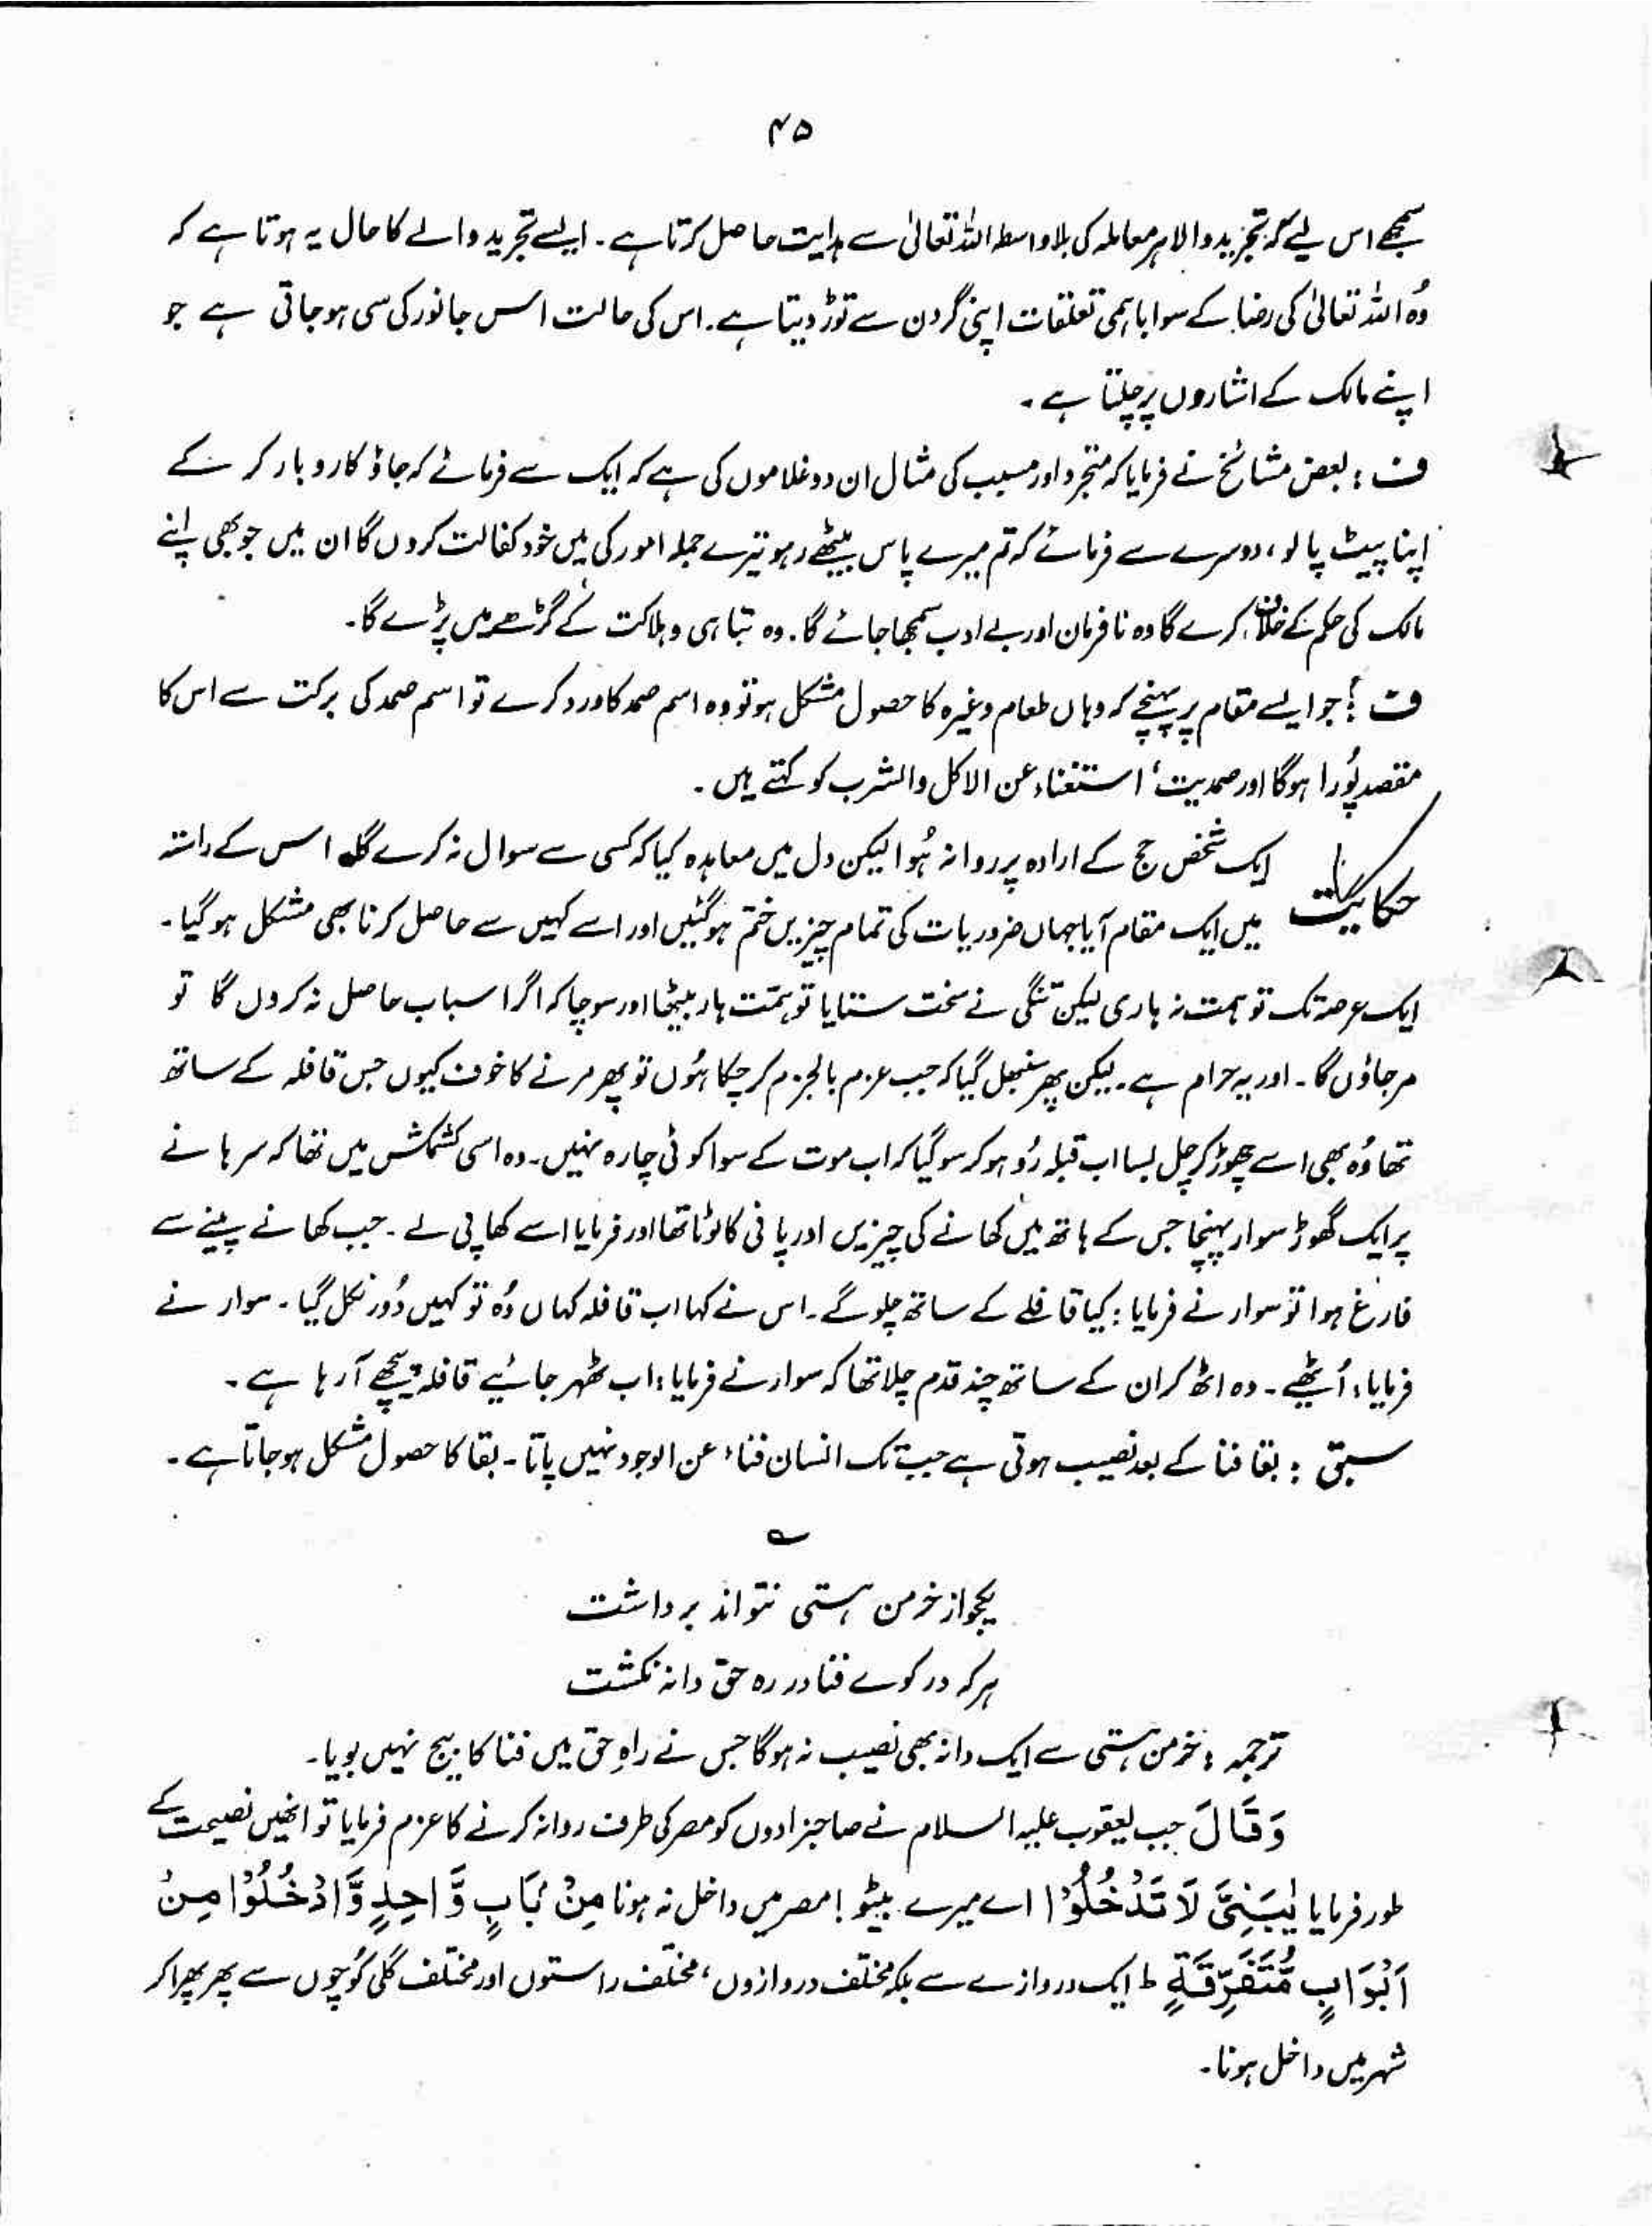 ۴۵
سمجھے اس لیے کہ تجرید والا ہر معاملہ کی بلاواسطہ اللہ تعالیٰ سے ہدایت حاصل کرتا ہے۔ ایسے تجرید والے کا حال یہ ہوتا ہے کہ
وُہ اللہ تعالیٰ کی رضا کے سوا باہمی تعلقات اپنی گردن سے توڑ دیتا ہے۔ اس کی حالت اس جانور کی سی ہو جاتی ہے جو
اپنے مالک کے اشاروں پر چلتا ہے۔
ف : بعض مشائخ نے فرمایا کہ متجرد اور مسبب کی مثال ان دو غلاموں کی ہے کہ ایک سے فرمائے کہ جاؤ کاروبار کر کے
اپنا پیٹ پالو، دوسرے سے فرمائے کہ تم میرے پاس بیٹھے رہو تیرے جملہ امور کی میں خود کفالت کروں گا ان میں جو بھی اپنے
مالک کی حکم کے خلاف کرے گا وہ نافرمان اور بے ادب سمجھا جائے گا۔ وہ تباہی و ہلاکت کے گڑھے میں پڑے گا۔
ف : جو ایسے مقام پر پہنچے کہ وہاں طعام وغیرہ کا حصول مشکل ہو تو وہ اسم صمد کا ورد کرے تو اسم صمد کی برکت سے اس کا
مقصد پُورا ہوگا اور صمدیت، استغناء عن الاکل والشرب کو کہتے ہیں۔
حکایت ایک شخص حج کے ارادہ پر روانہ ہُوا لیکن دل میں معاہدہ کیا کہ کسی سے سوال نہ کرے گا۔ اس کے راستہ
میں ایک مقام آیا جہاں ضروریات کی تمام چیزیں ختم ہو گئیں اور اسے کہیں سے حاصل کرنا بھی مشکل ہو گیا۔
ایک عرصہ تک تو ہمت نہ ہاری لیکن تنگی نے سخت ستایا تو ہمّت ہار بیٹھا اور سوچا کہ اگر اسباب حاصل نہ کروں گا تو
مر جاؤں گا۔ اور یہ حرام ہے۔ لیکن پھر سنبھل گیا کہ جب عزم بالجزم کر چکا ہُوں تو پھر مرنے کا خوف کیوں جس قافلہ کے ساتھ
تھا وُہ بھی اسے چھوڑ کر چل بسا اب قبلہ رُو ہو کر سو گیا کہ اب موت کے سوا کوئی چارہ نہیں۔ وہ اسی کشمکش میں تھا کہ سرہانے
پر ایک گھوڑ سوار پہنچا جس کے ہاتھ میں کھانے کی چیزیں اور پانی کا لوٹا تھا اور فرمایا اسے کھا پی لے۔ جب کھانے پینے سے
فارغ ہوا تو سوار نے فرمایا : کیا قافلے کے ساتھ چلو گے۔ اس نے کہا اب قافلہ کہاں وُہ تو کہیں دُور نکل گیا۔ سوار نے
فرمایا: اُٹھیے۔ وہ اٹھ کر ان کے ساتھ چند قدم چلا تھا کہ سوار نے فرمایا: اب ٹھہر جائیے قافلہ پیچھے آ رہا ہے۔
سبق : بقا فنا کے بعد نصیب ہوتی ہے جب تک انسان فناء عن الوجود نہیں پاتا۔ بقا کا حصول مشکل ہو جاتا ہے۔
؎
یکجو از خرمن ہستی نتواند برداشت
ہر کہ در کوے فنا در رہ حق دانہ نکشت
ترجمہ : خرمن ہستی سے ایک دانہ بھی نصیب نہ ہوگا جس نے راہِ حق میں فنا کا بیج نہیں بویا۔
وَقَالَ جب یعقوب علیہ السلام نے صاحبزادوں کو مصر کی طرف روانہ کرنے کا عزم فرمایا تو انھیں نصیحت کے
طور فرمایا یٰبَنِیَّ لَا تَدْخُلُوْا اے میرے بیٹو ! مصر میں داخل نہ ہونا مِنْ بَابٍ وَّاحِدٍ وَّادْخُلُوْا مِنْ
اَبْوَابٍ مُّتَفَرِّقَةٍ ط ایک دروازے سے بلکہ مختلف دروازوں، مختلف راستوں اور مختلف گلی کُوچوں سے پھر پھرا کر
شہر میں داخل ہونا۔